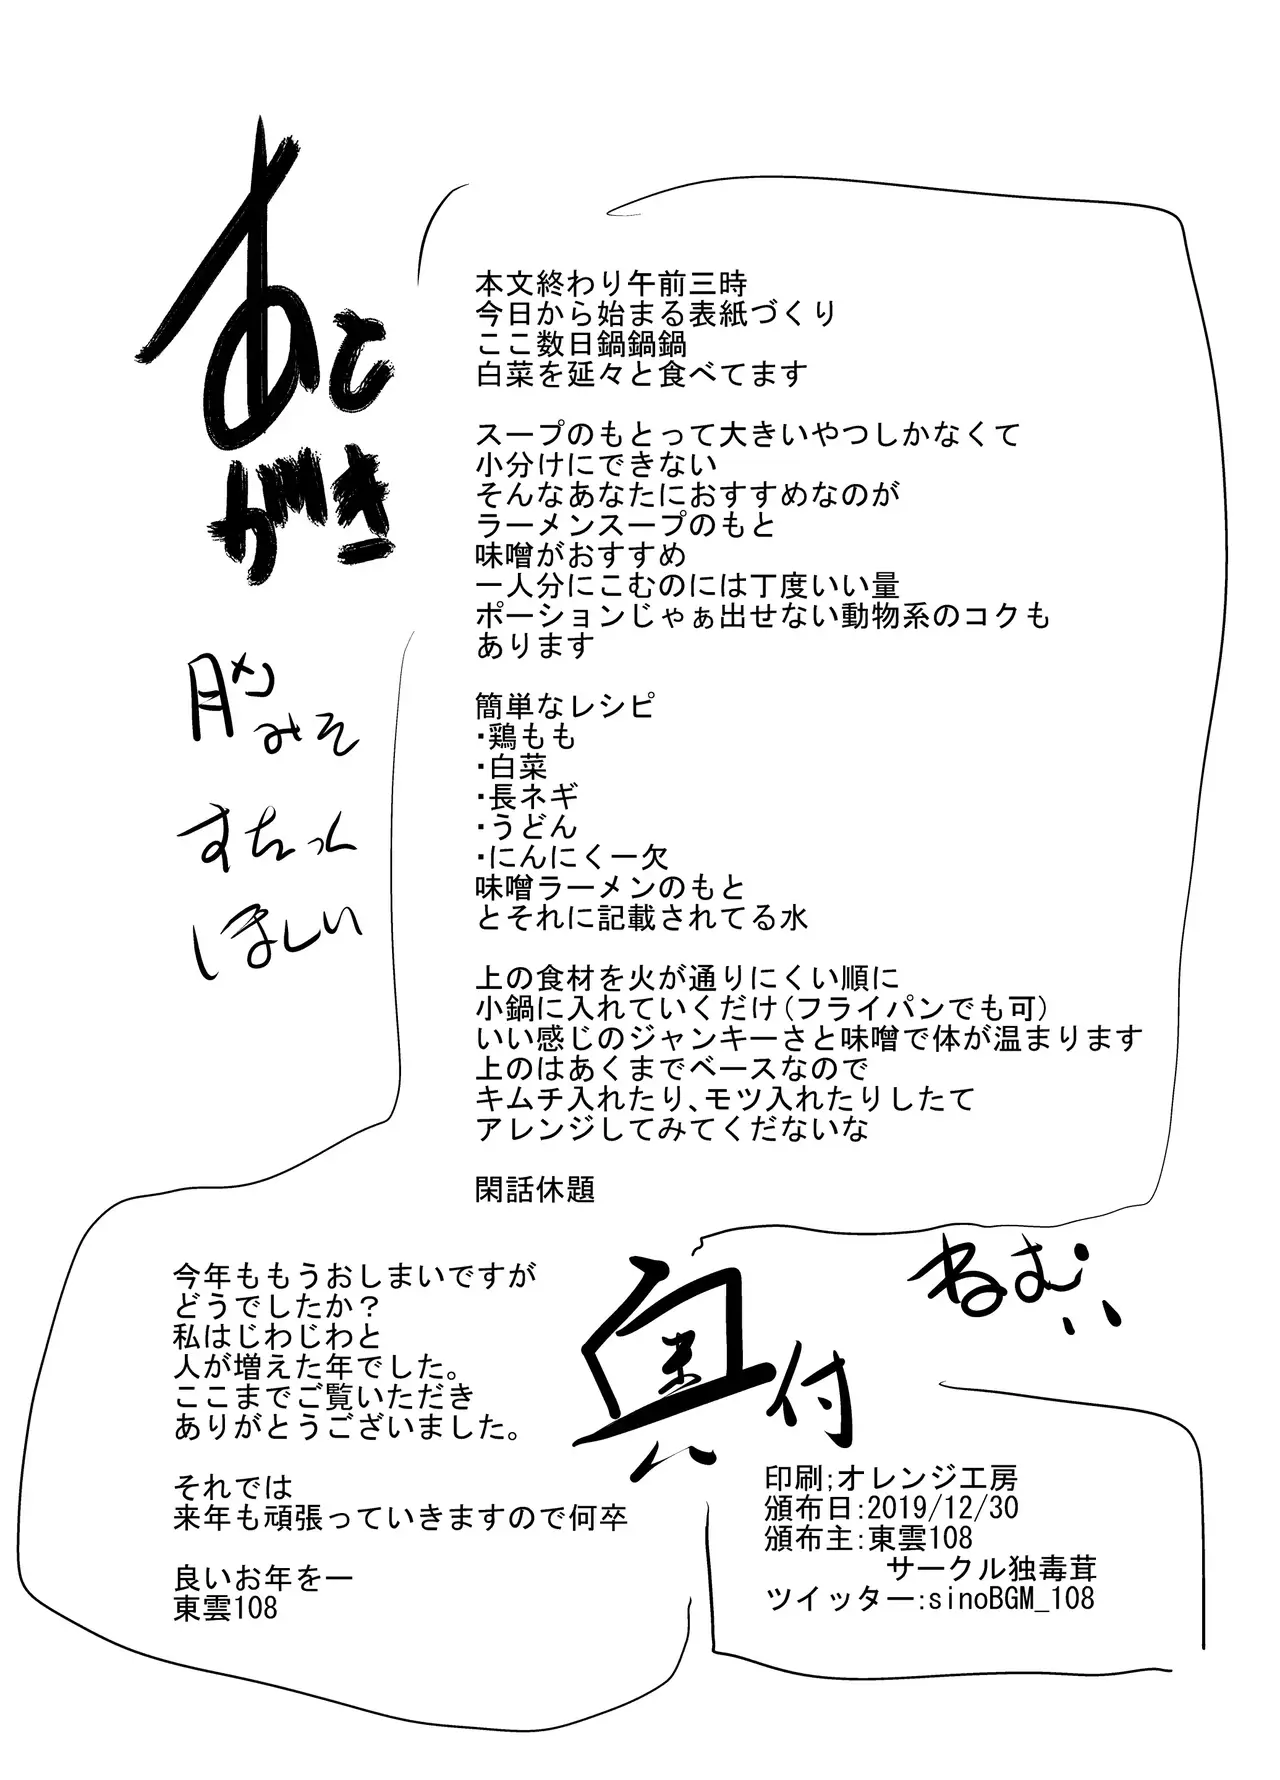 あとがき
本文終わり午前三時
今日から始まる表紙づくり
ここ数日鍋鍋鍋
白菜を延々と食べてます
スープのもとって大きいやつしかなくて
小分けにできない
そんなあなたにおすすめなのが
ラーメンスープのもと
味噌がおすすめ
一人分にこむのには丁度いい量
ポーションじゃぁ出せない動物系のコクも
あります
簡単なレシピ
・鶏もも
・白菜
・長ネギ
・うどん
・にんにく一欠
味噌ラーメンのもと
とそれに記載されてる水
上の食材を火が通りにくい順に
小鍋に入れていくだけ(フライパンでも可)
いい感じのジャンキーさと味噌で体が温まります
上のはあくまでベースなので
キムチ入れたり、モツ入れたりしたて
アレンジしてみてくだないな
閑話休題
みそ
すとっく
ほしい
今年ももうおしまいですが
どうでしたか？
私はじわじわと
人が増えた年でした。
ここまでご覧いただき
ありがとうございました。
それでは
来年も頑張っていきますので何卒
良いお年を―
東雲108
ねむい
奥付
印刷;オレンジ工房
頒布日:2019/12/30
頒布主:東雲108
サークル独毒茸
ツイッター:sinoBGM_108